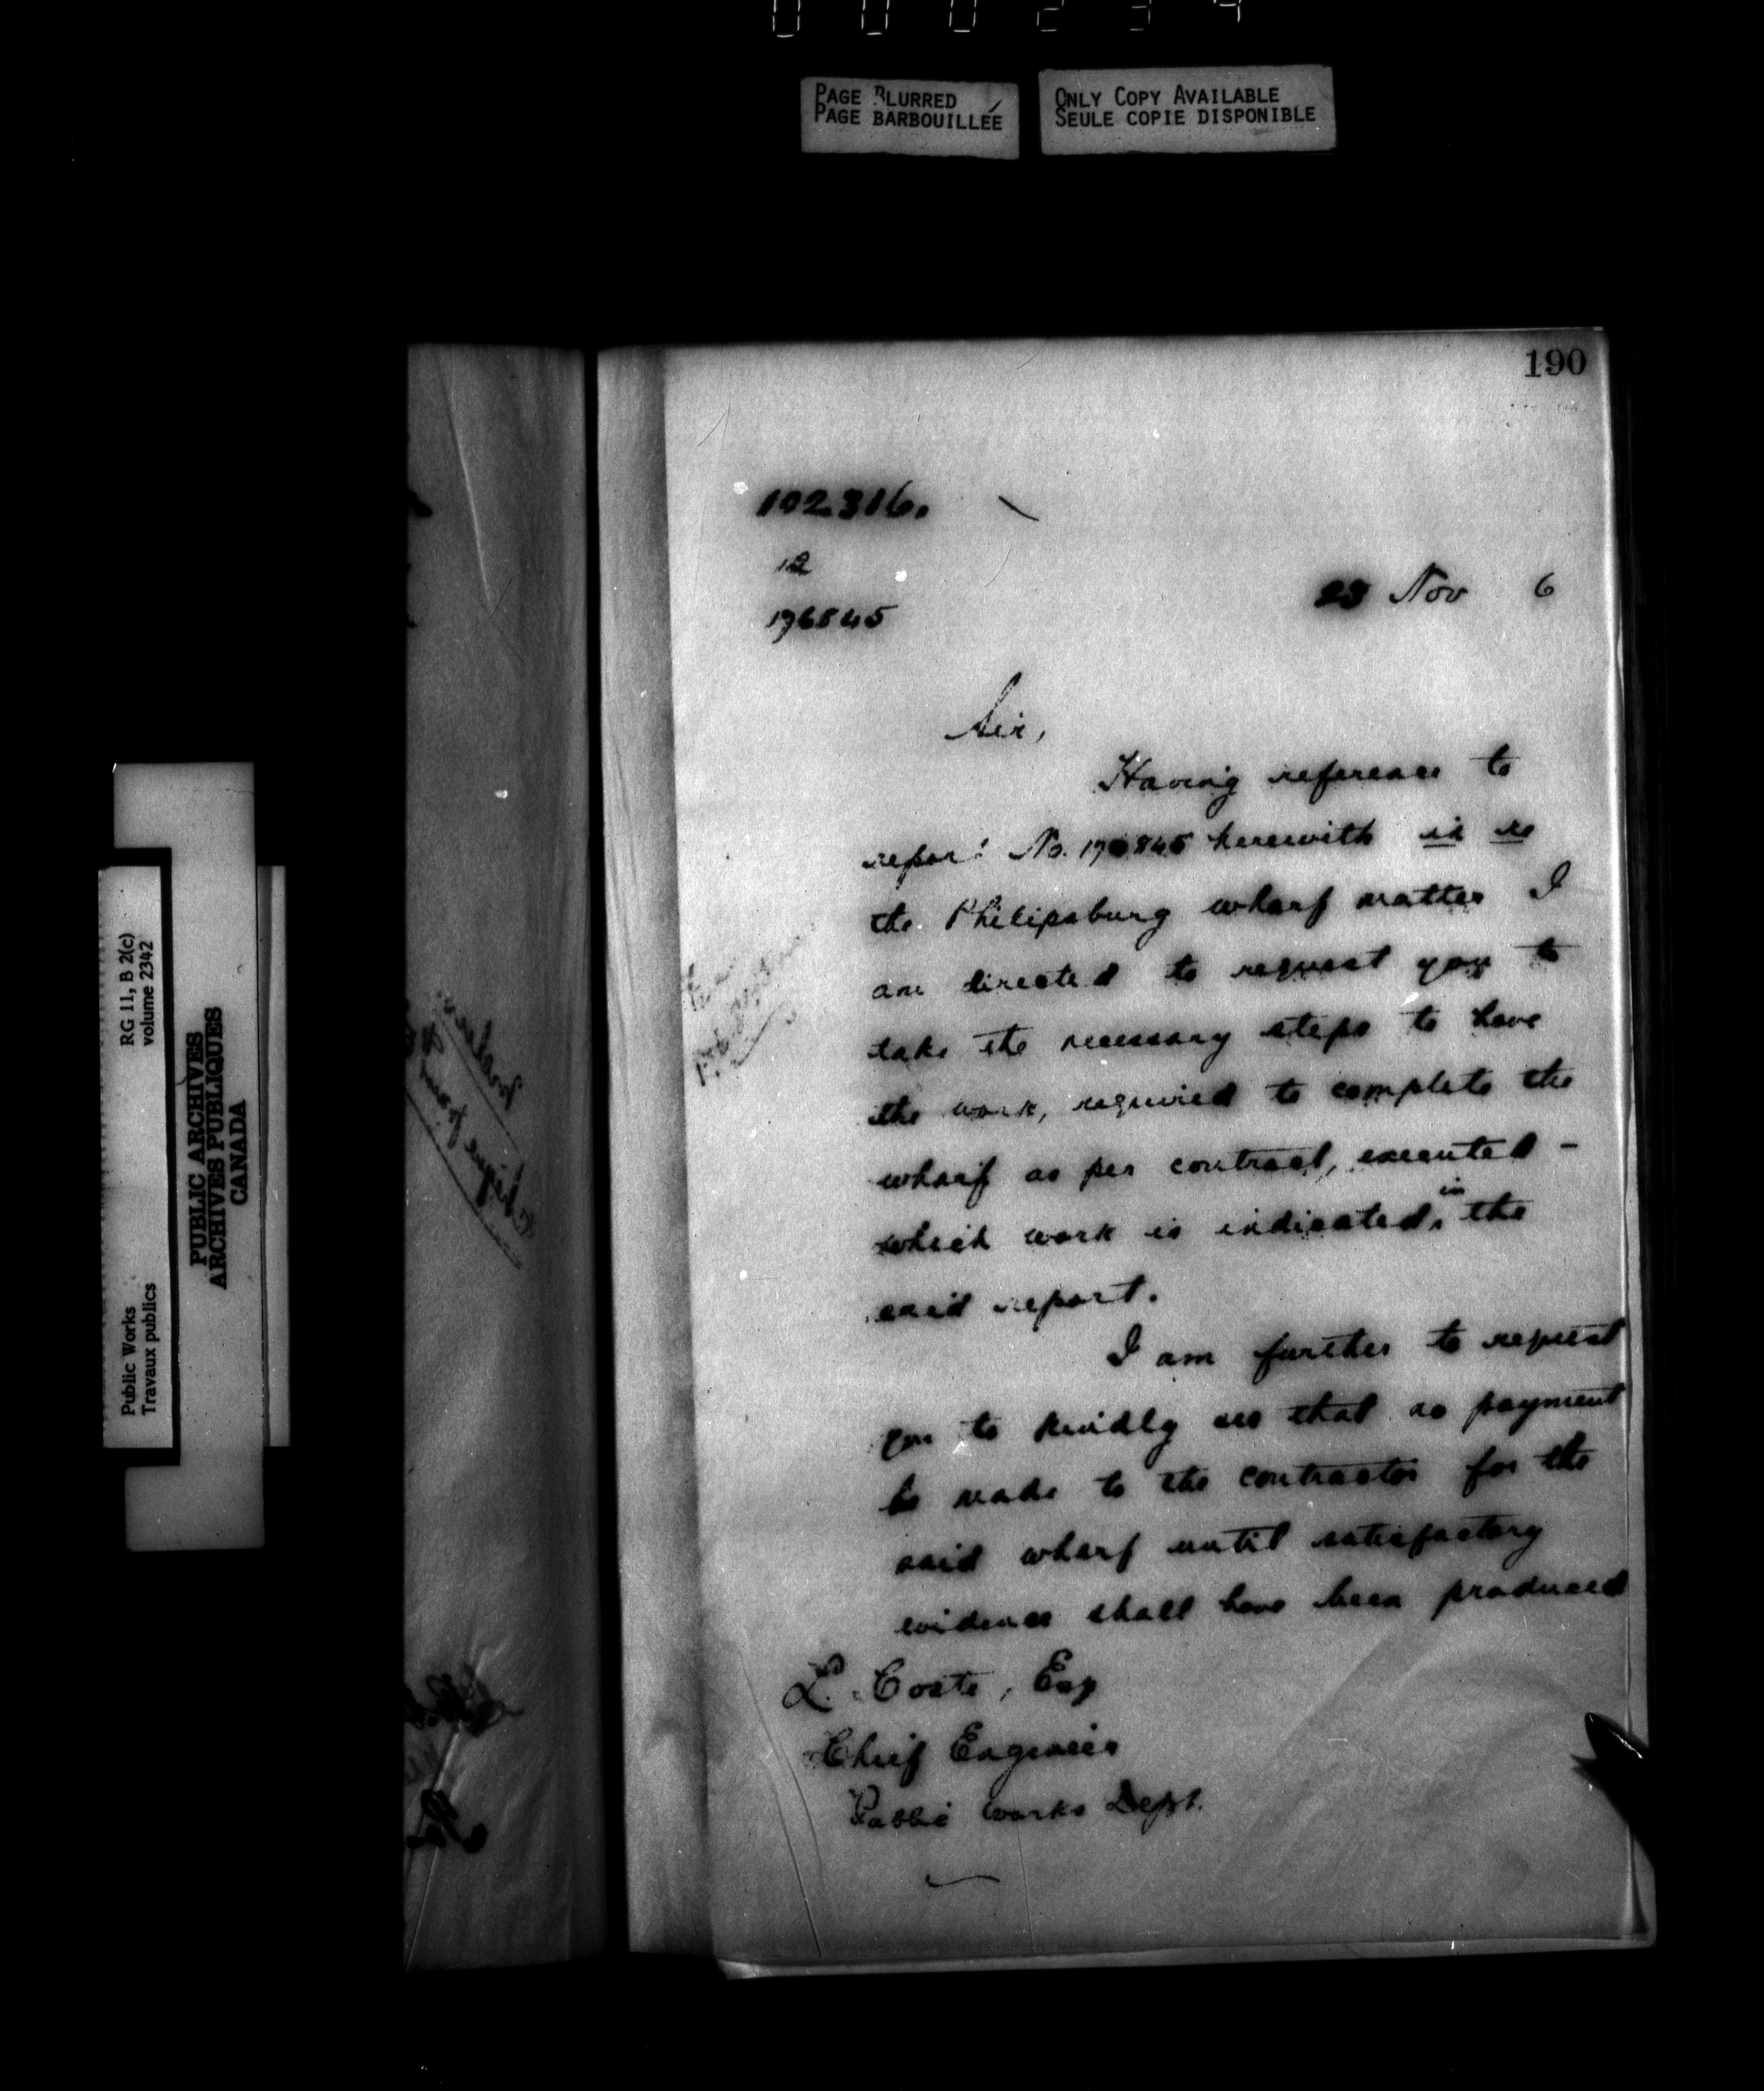 000234
PAGE BLURRED
PAGE BARBOUILLÉE
ONLY COPY AVAILABLE
SEULE COPIE DISPONIBLE
190
102316.
12
176845
23 Nov 6
Sir,
Having reference to
report No. 176845 herewith in re
the Philipsburg wharf matter I
am directed to request you to
take the necessary steps to have
the work, required to complete the
wharf as per contract, executed -
which work is indicated in the
said report.
I am further to request
you to kindly see that no payment
be made to the contractor for the
said wharf until satisfactory
evidence shall have been produced
L. Coste, Esq
Chief Engineer
Public Works Dept.
Public Works
Travaux publics
RG 11, B 2(c)
volume 2342
PUBLIC ARCHIVES
ARCHIVES PUBLIQUES
CANADA